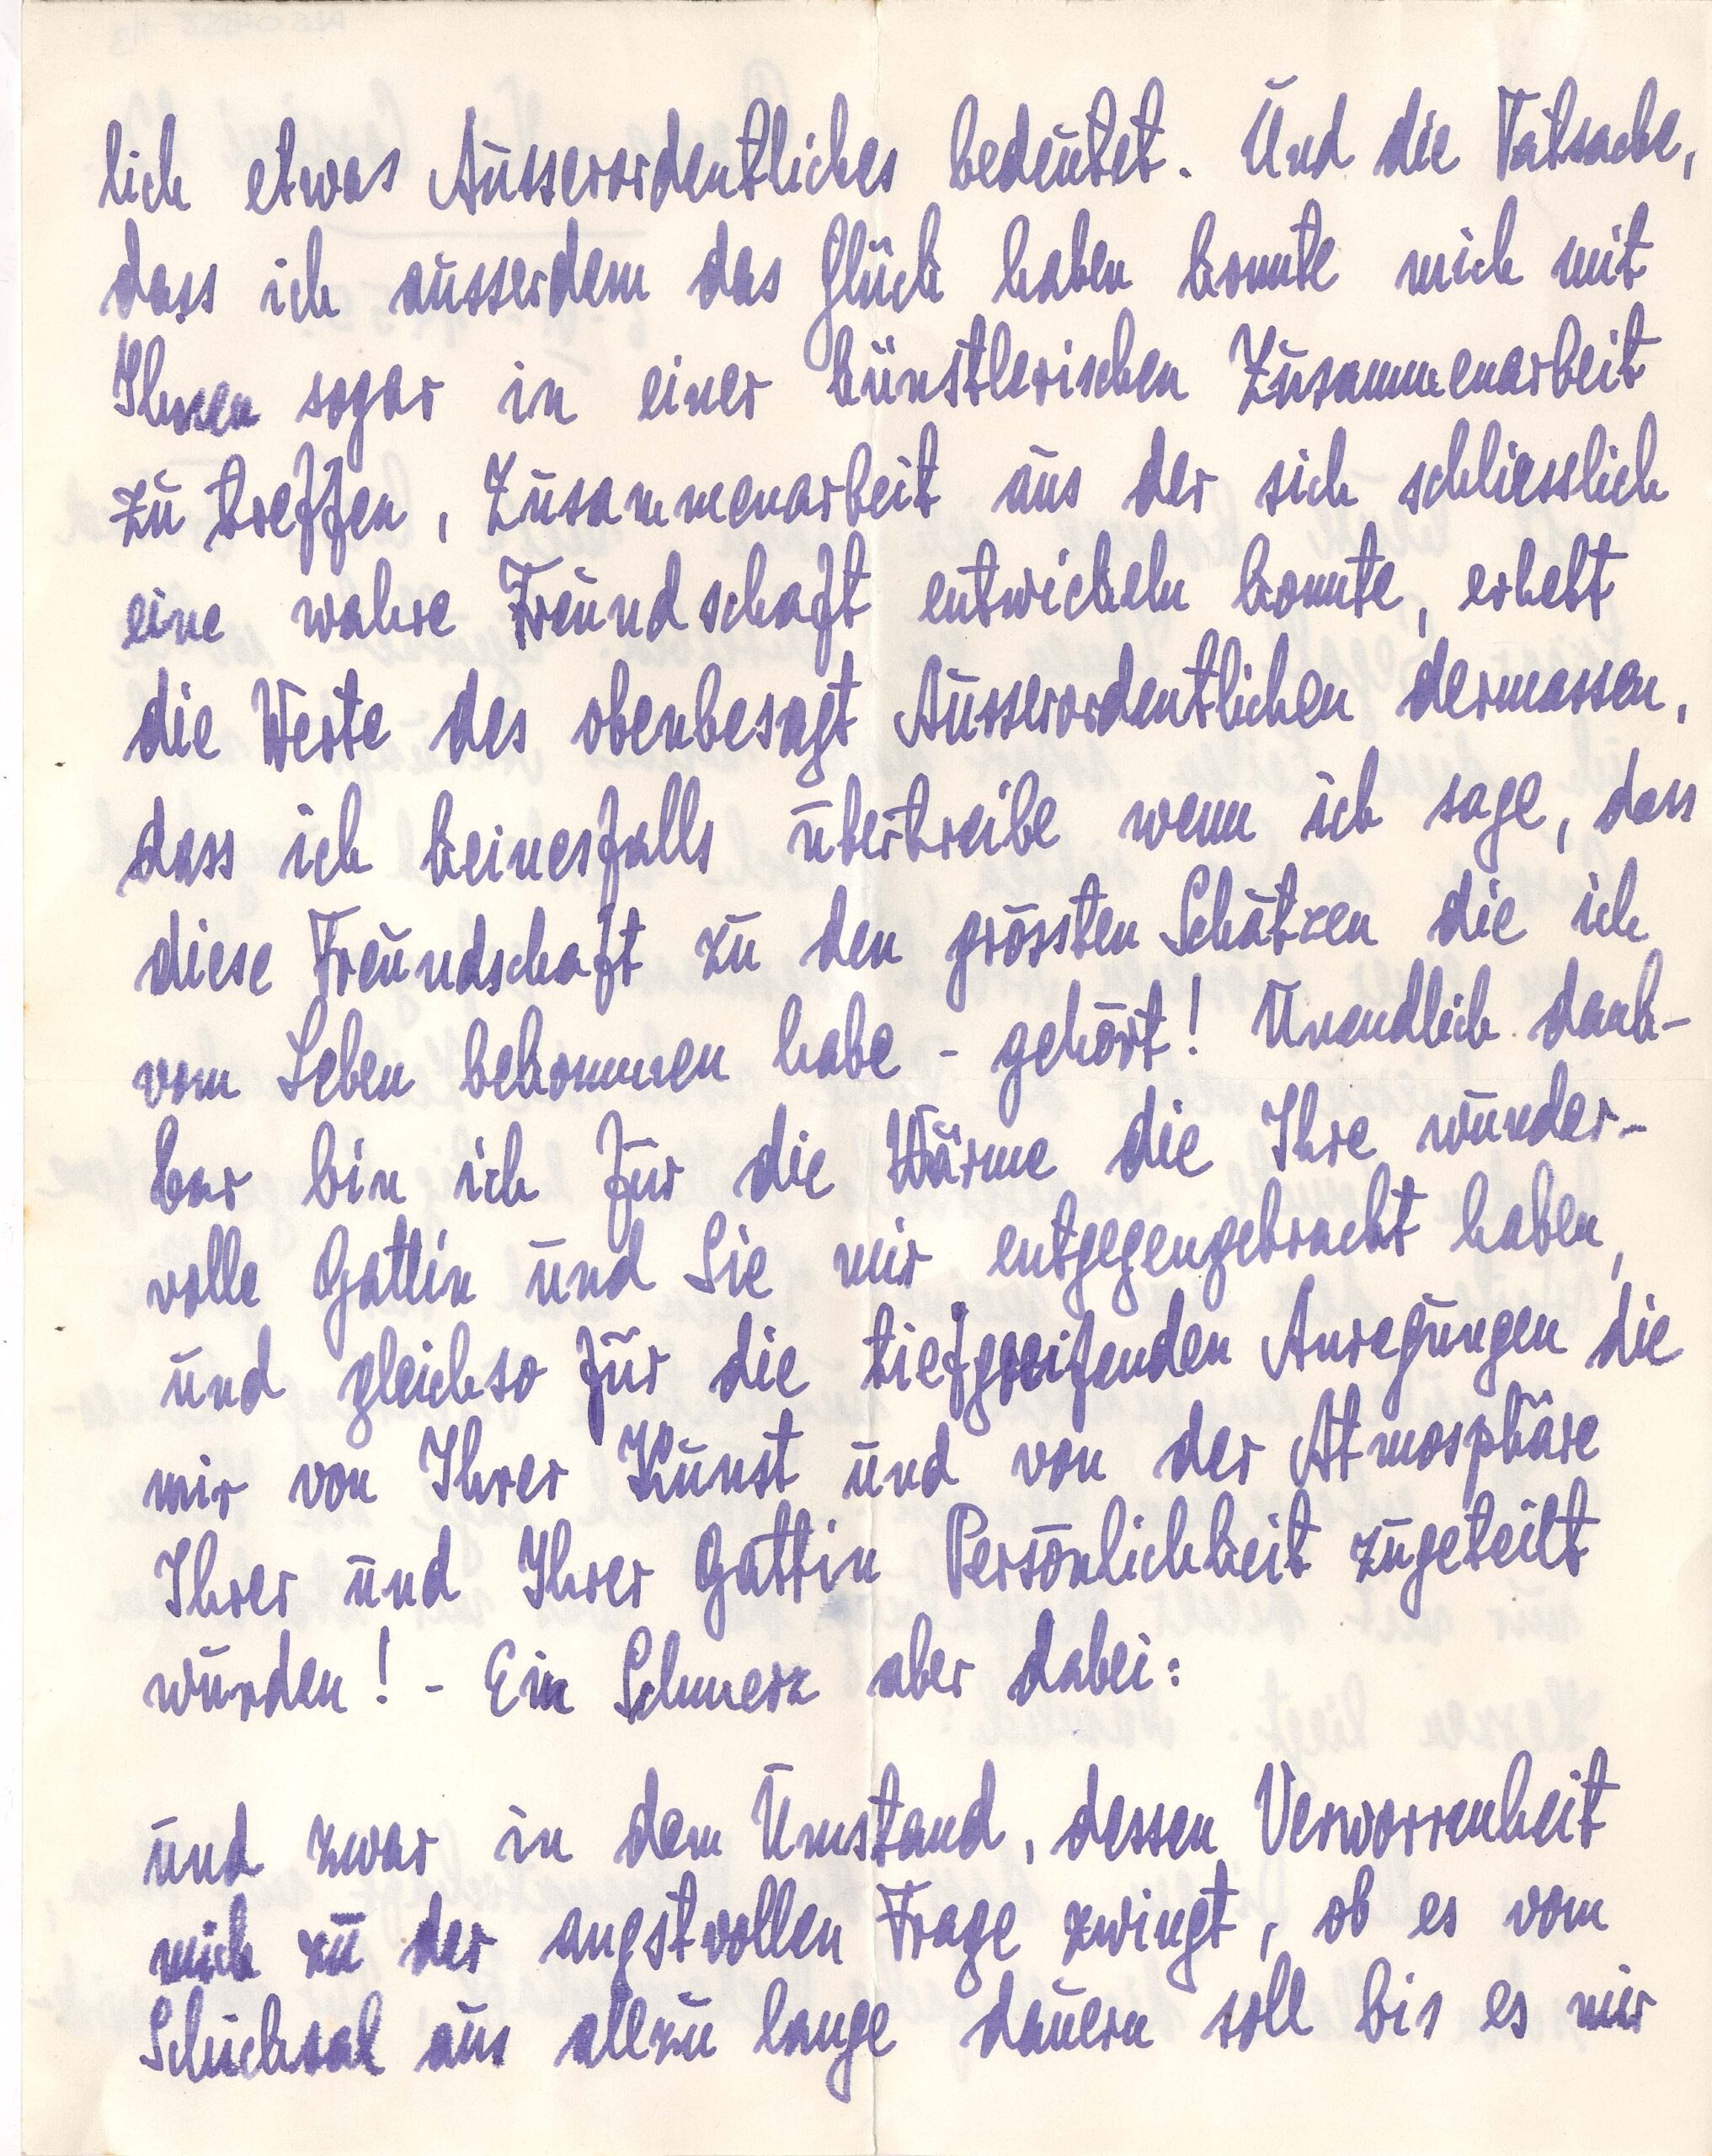 lich etwas Ausserordentliches bedeutet. Und die Tatsache,
dass ich ausserdem das Glück haben konnte mich mit
Ihnen sogar in einer künstlerischen Zusammenarbeit
zu treffen, Zusammenarbeit aus der sich schliesslich
eine wahre Freundschaft entwickeln konnte, erhebt
die Werte des obenbesagt Ausserordentlichen dermassen,
dass ich keinesfalls übertreibe wenn ich sage, dass
diese Freundschaft zu den grössten Schätzen die ich
vom Leben bekommen habe - gehört! Unendlich dank-
bar bin ich für die Wärme die Ihre wunder-
volle Gattin und Sie mir entgegengebracht haben,
und gleichso für die tiefgreifenden Anregungen die
mir von Ihrer Kunst und von der Atmosphäre
Ihrer und Ihrer Gattin Persönlichkeit zugeteilt
wurden! - Ein Schmerz aber dabei:
und zwar in dem Umstand, dessen Verworrenheit
mich zu der angstvollen Frage zwingt, ob es vom
Schicksal aus allzu lange dauern soll bis es mir